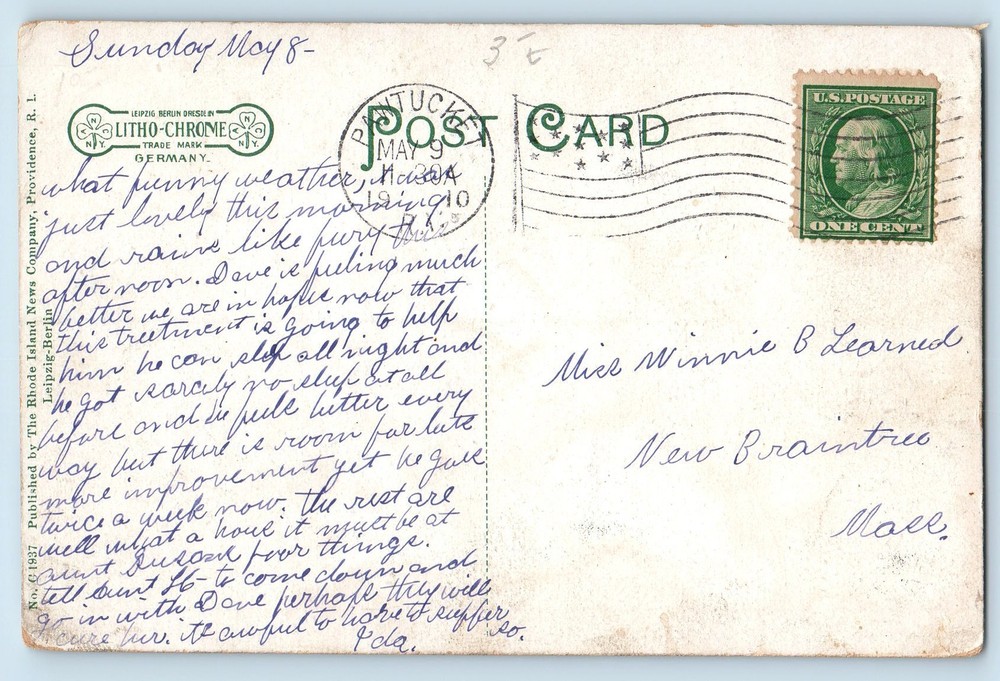 Sunday May 8-
3 - E
LEIPZIG BERLIN DRESDEN
LITHO-CHROME
TRADE MARK
GERMANY.
N N.Y. C
N N.Y. C
POST CARD
PAWTUCKET
MAY 9
11 30A
1910
R.I.
U.S. POSTAGE
ONE CENT
No. C 1937 Published by The Rhode Island News Company, Providence, R. I.
Leipzig-Berlin
what funny weather, it was
just lovely this morning
and rains like fury this
after noon. Dave is feeling much
better we are in hopes now that
this treetment is going to help
him he can slep all night and
he got scarcly no sleep at all
before and he feels better every
way but there is room for lots
more improvement yet he goes
twice a week now. the rest are
well what a house it must be at
aunt Susans poor things.
tell aunt to come down and
go in with Dave perhaps they will
cure her. its awful to have to suffer
so.
Ida.
Miss Winnie B Learned.
New Braintree
Mass.